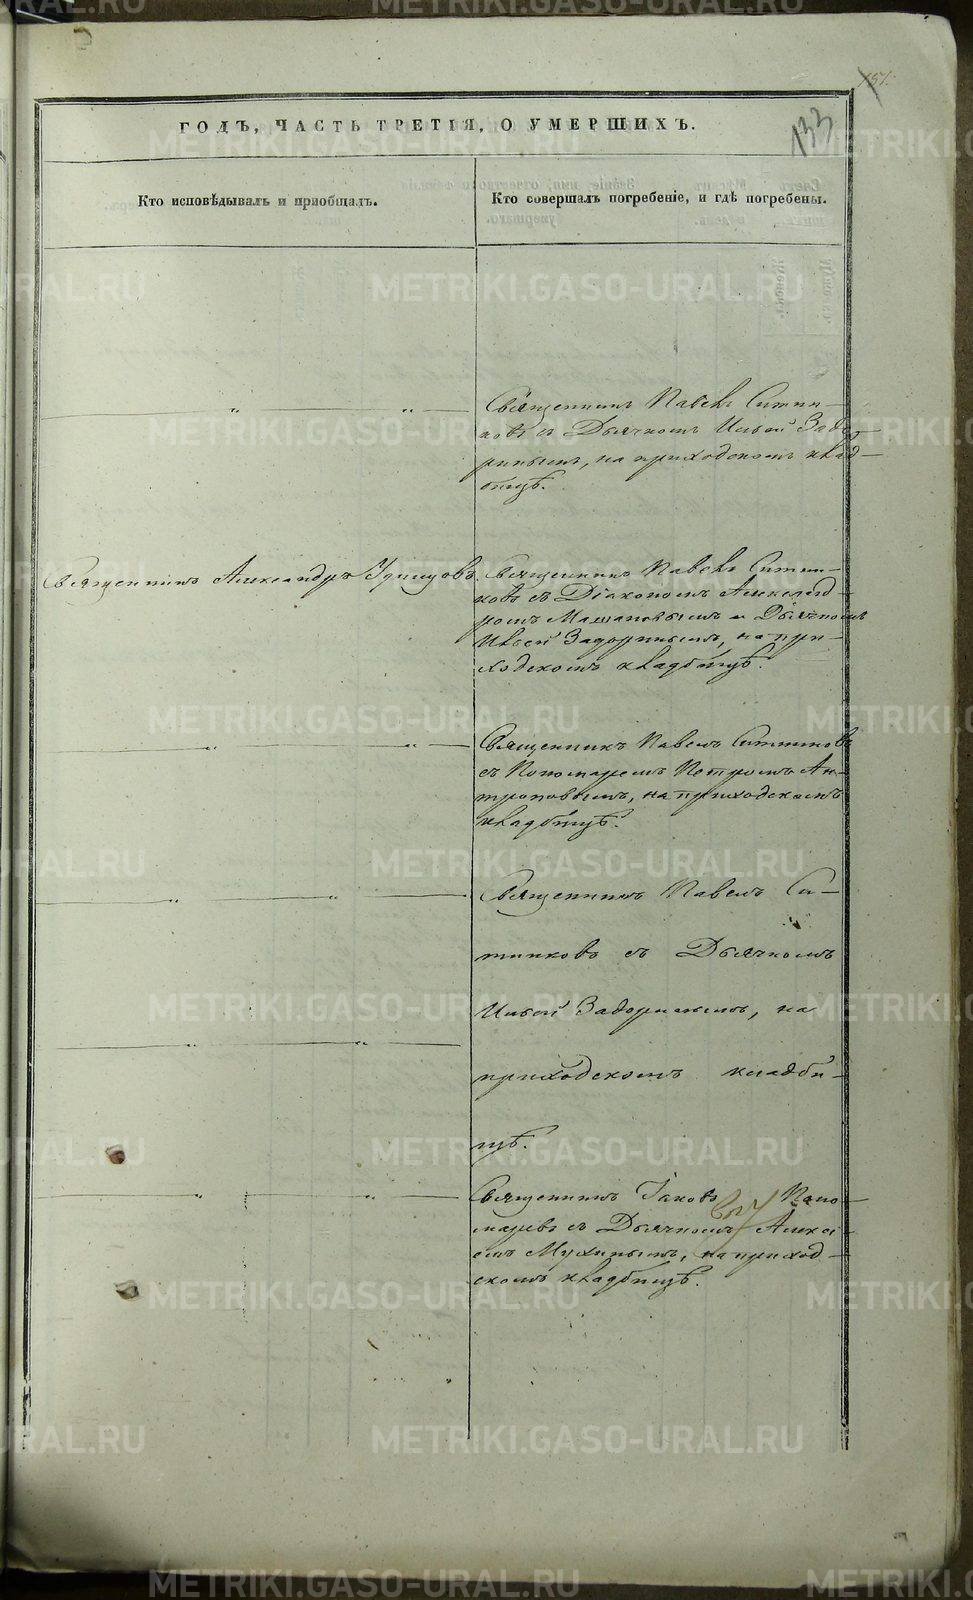 151.
133
ГОДЪ, ЧАСТЬ ТРЕТІЯ, О УМЕРШИХЪ.
Кто исповѣдывалъ и приобщалъ.
Кто совершалъ погребеніе, и гдѣ погребены.
Священникъ Павелъ Ситни-
ковъ съ Дьячкомъ Ильей Задо-
ринымъ, на приходскомъ клад-
бищѣ.
Священникъ Александръ
Священникъ Павелъ Ситни-
ковъ съ Діакономъ Александ-
ромъ и Дьячкомъ
Ильей Задоринымъ, на при-
ходскомъ кладбищѣ.
Священникъ Павелъ Ситниковъ
съ Пономаремъ Петромъ Ан-
троповымъ, на приходскомъ
кладбищѣ.
Священникъ Павелъ Си-
тниковъ съ Дьячкомъ
Ильей Задоринымъ, на
приходскомъ кладби-
щѣ.
Священникъ Іаковъ Поно-
маревъ съ Дьячкомъ Алексѣ-
емъ Мухинымъ, на приход-
скомъ кладбищѣ.
METRIKI.GASO-URAL.RU